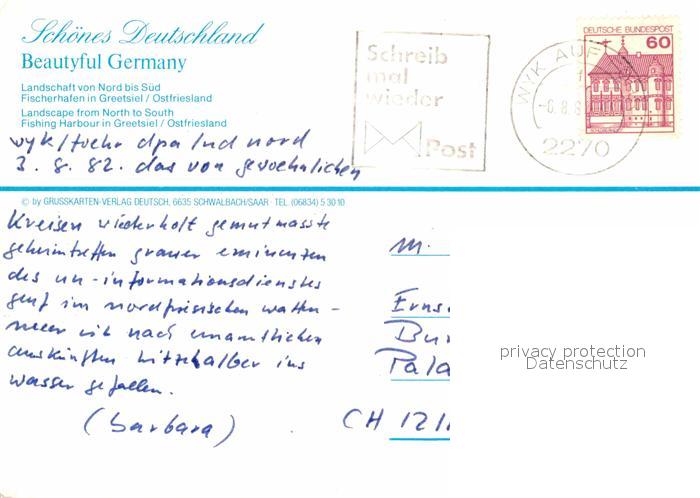 Schönes Deutschland
Beautyful Germany
Landschaft von Nord bis Süd
Fischerhafen in Greetsiel / Ostfriesland
Landscape from North to South
Fishing Harbour in Greetsiel / Ostfriesland
Schreib
mal
wieder
Post
WYK AUF
-6.8.8
2270
DEUTSCHE BUNDESPOST
60
wyk/foehr dpa/nd nord
3. 8. 82. das von gewoehnlichen
© by GRUSSKARTEN-VERLAG DEUTSCH, 6635 SCHWALBACH/SAAR · TEL (06834) 5 30 10
Kreisen wiederholt gemutmasste
geheimtreffen grauer eminenzen
des un-informationsdienstes
genf im nordfriesischen watten-
meer ist nach unamtlichen
auskünften hitzehalber ins
wasser gefallen.
(barbara)
M.
Erns
Bu
Pala
CH 121
privacy protection
Datenschutz